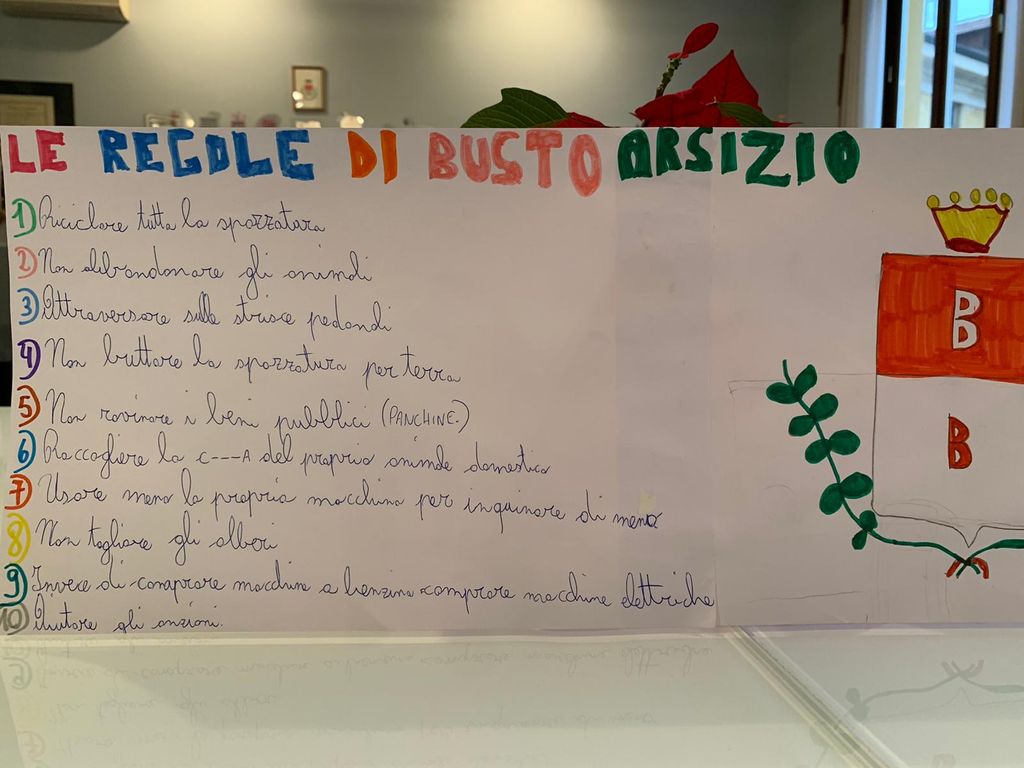 LE REGOLE DI BUSTO ARSIZIO
1) Riciclare tutta la spazzatura
2) Non abbandonare gli animali
3) Attraversare sulle strisce pedonali
4) Non buttare la spazzatura per terra
5) Non rovinare i beni pubblici (PANCHINE.)
6) Raccogliere la C---A del proprio animale domestico
7) Usare meno la propria macchina per inquinare di meno
8) Non tagliare gli alberi
9) Invece di comprare macchine a benzina comprare macchine elettriche
10) Aiutare gli anziani.
B
B